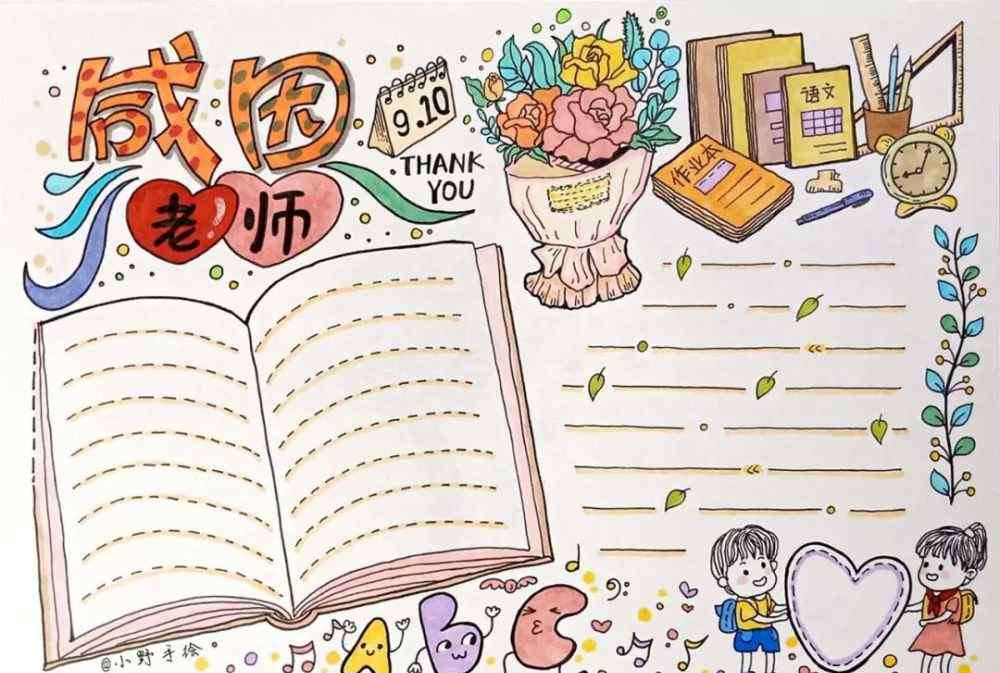 感恩
老师
9.10
THANK
YOU
语文
作业本
A b C
@小野手绘